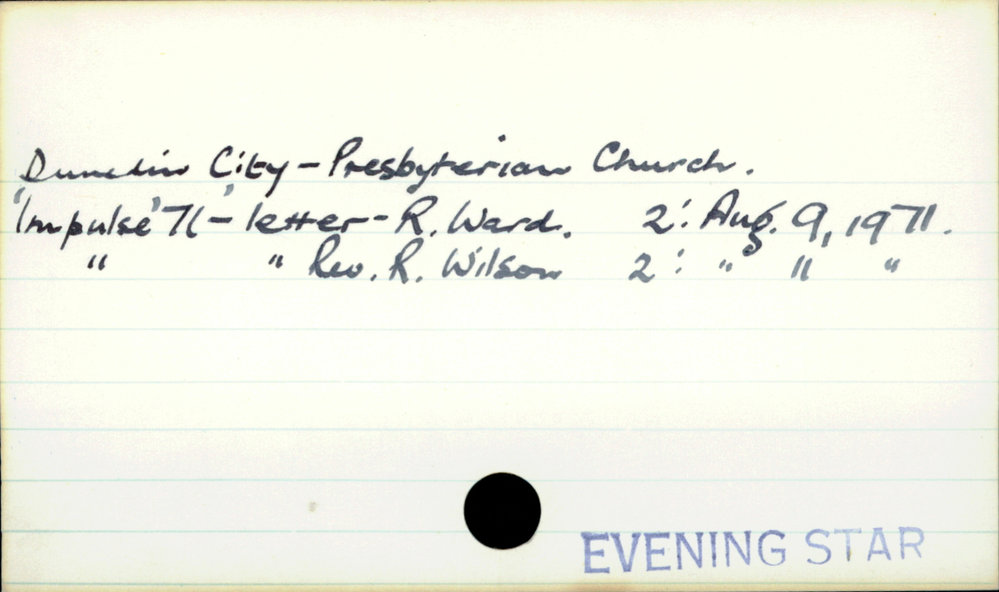 Dunedin City - Presbyterian Church.
'Impulse' 71' - letter - R. Ward. 2: Aug. 9, 1971.
" " Rev. R. Wilson 2: " " "
EVENING STAR